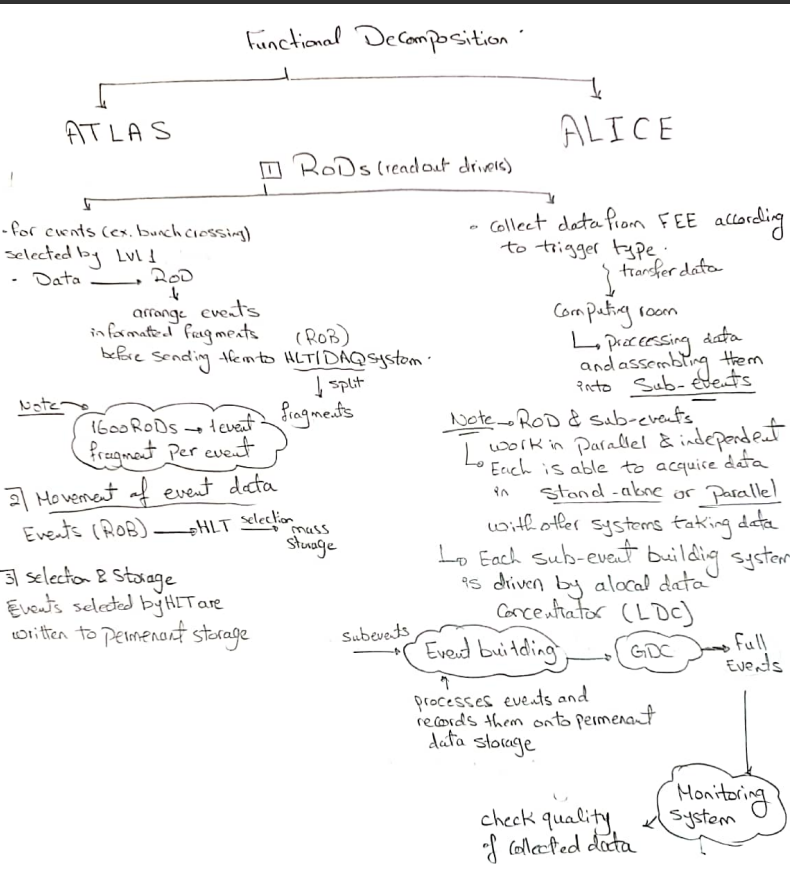 Functional Decomposition
ATLAS
ALICE
1 RoDs (readout drivers)
- for events (ex. bunch crossing)
selected by Lvl 1
- Data → ROD
arrange events
in formatted fragments (ROB)
before sending them to HLT/DAQ system.
↓ split
fragments
Note →
1600 RoDs → 1 event
fragment per event
2] Movement of event data
Events (ROB) → HLT selection → mass
storage
3] Selection & Storage
Events selected by HLT are
written to permenant storage
- Collect data from FEE according
to trigger type.
transfer data
Computing room
↳ processing data
and assembling them
into Sub-events
Note → ROD & sub-events
work in Parallel & independent
↳ Each is able to acquire data
in stand-alone or Parallel
with other systems taking data
↳ Each sub-event building system
is driven by a local data
Concentrator (LDC)
Subevents → Event building → GDC → Full
Events
processes events and
records them onto permenant
data storage
Monitoring
system
check quality
of collected data